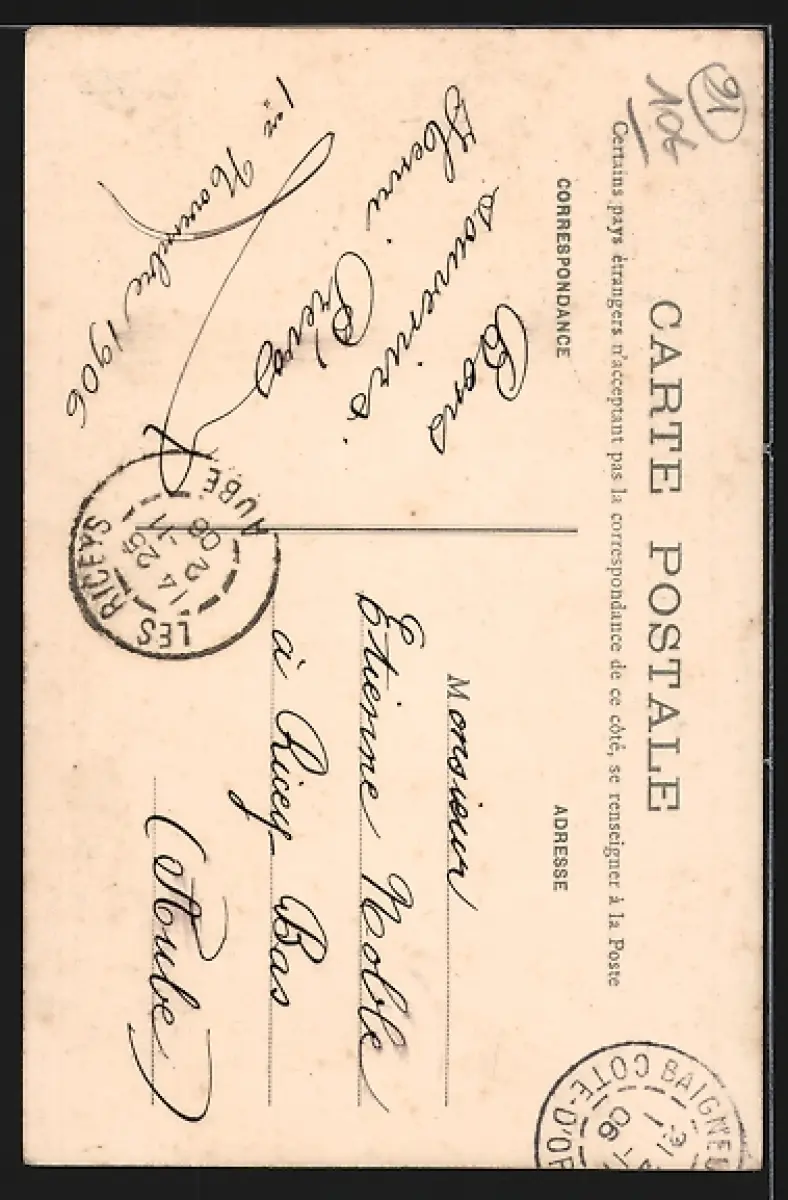 91
106
CARTE POSTALE
Certains pays étrangers n'acceptant pas la correspondance de ce côté, se renseigner à la Poste
CORRESPONDANCE
Bons
souvenirs.
Henri
1er Novembre 1906
ADRESSE
Monsieur
Etienne Noble
à Ricey-Bas
(Aube)
LES RICEYS
14 25
2 -11
06
AUBE
BAIGNEU
06
COTE-D'OR